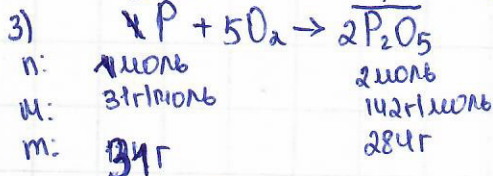 3) 4P + 5O₂ → 2P₂O₅
n: 4моль 2моль
M: 31г/моль 142г/моль
m: г 284г